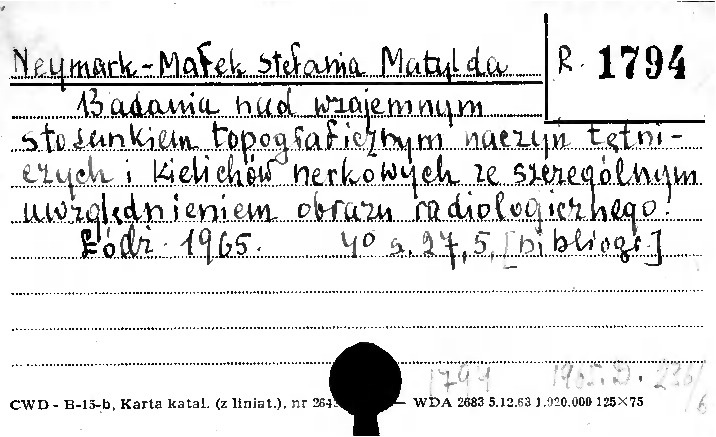 Neymark-Małek Stefania Matylda
R. 1794
Badania nad wzajemnym
stosunkiem topograficznym naczyń tętni-
czych i kielichów nerkowych ze szczególnym
uwzględnieniem obrazu radiologicznego.
Łódź 1965. 4° s. 27, 5, [bibliogr.]
1794 1965. D. 236/6
CWD - B-15-b, Karta katal. (z liniat.), nr 264 — WDA 2683 5.12.63 1.920.000 125×75